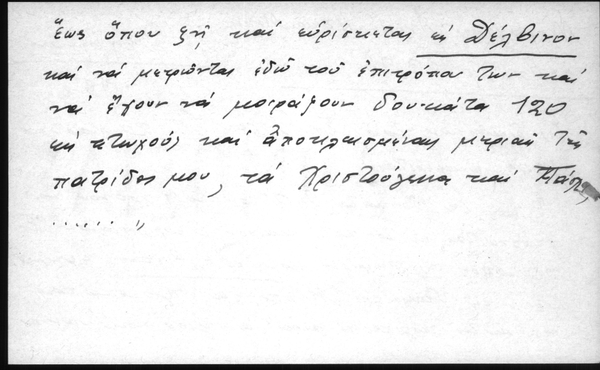 ἕως ὅπου ζῆ καὶ εὑρίσκεται εἰς Δέλβινον
καὶ νά μετρῶνται ἐδῶ τοῦ ἐπιτρόπου των καὶ
νά ἔχουν νά μοιράζουν δουκάτα 120
εἰς πτωχούς καὶ ἀποκλεισμένας μερικαῖς τῆς
πατρίδος μου, τά Χριστούγεννα καὶ Πάσχα,
...... „